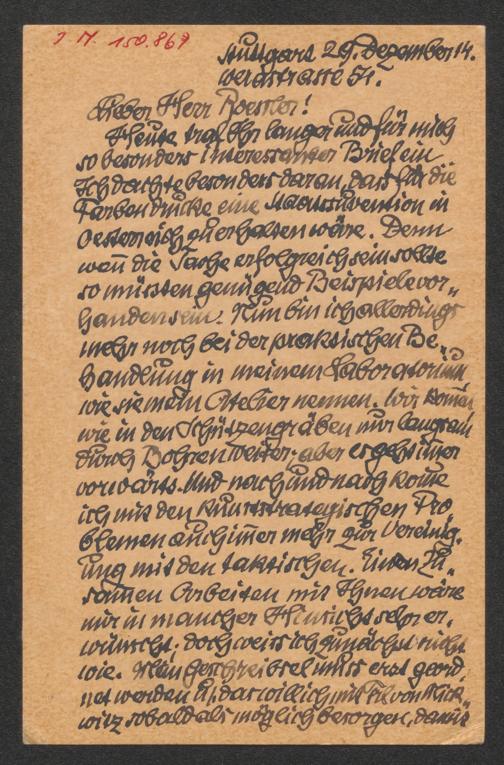 I. N. 150.869
Stuttgart 29. Dezember 14.
Werastrasse 54.
Lieber Herr Roessler!
Heute traf Ihr langer und für mich
so besonders interessanter Brief ein
Ich dachte besonders daran, dass für die
Farbendrucke eine Staatssubvention in
Oesterreich zu erhalten wäre. Denn
wen̄ die Sache erfolgreich sein sollte
so müssten genügend Beispiele vor-
handen sein. Nun bin ich allerdings
mehr noch bei der praktischen Be-
handlung in meinem Laboratorium
wie sie mein Atelier nennen. Wir kom̄en
wie in den Schützengräben nur langsam
durch Bohren weiter; aber es geht im̄er
vorwärts. Und nach und nach kom̄e
ich mit den kunststrategischen Pro-
blemen auch im̄er mehr zur Vereinig-
ung mit den taktischen. Ein Zu-
sam̄en Arbeiten mit Ihnen wäre
mir in mancher Hinsicht sehr er-
wünscht; doch weiss ich zunächst nicht
wie. Mein Geschreibsel muss erst geord-
net werden u. das will ich mit
sobald als möglich besorgen, damit